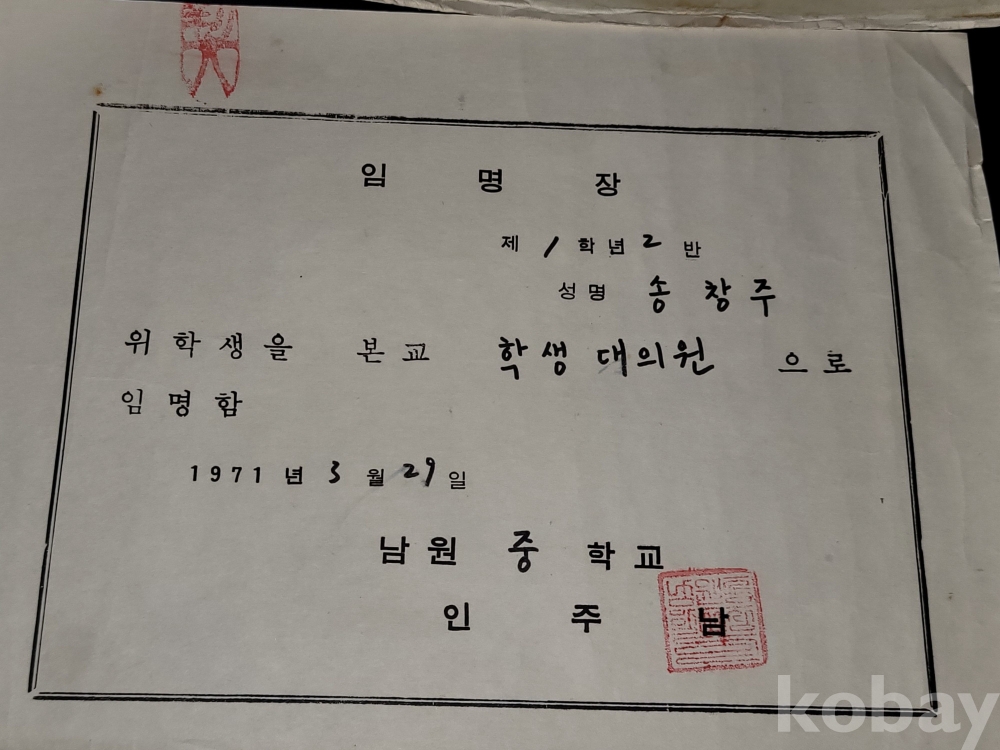 임 명 장
제 1 학년 2 반
성명 송 창 주
위 학 생 을 본 교 학 생 대 의 원 으 로
임 명 함
1971 년 3 월 29 일
남 원 중 학 교
인 주 남
kobay